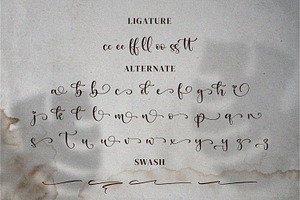 LIGATURE
cc ee ff ll oo ss tt
ALTERNATE
a b b c d e f g h i
j k l l m n o p q n
s t u v w x y z z
SWASH